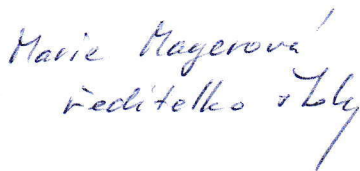 Marie Magerová
ředitelka školy